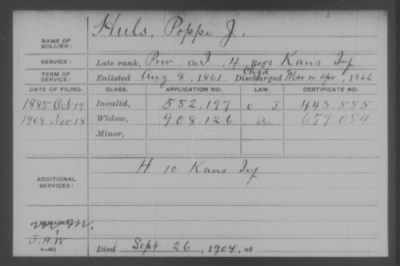 NAME OF SOLDIER: Huls, Poppe J.
SERVICE: Late rank, Priv Co I, 4 Regt Kans Inf
TERM OF SERVICE: Enlisted Aug 8, 1861 Discharged Mar or Apr, 1862
DATE OF FILING. CLASS. APPLICATION NO. LAW. CERTIFICATE NO.
1885 Oct 19 Invalid, 552.197 443 555
1908 Nov 18 Widow, 908.126 679 054
Minor,
ADDITIONAL SERVICES: H 10 Kans Inf
J.H.W
Died Sept 26, 1904, at